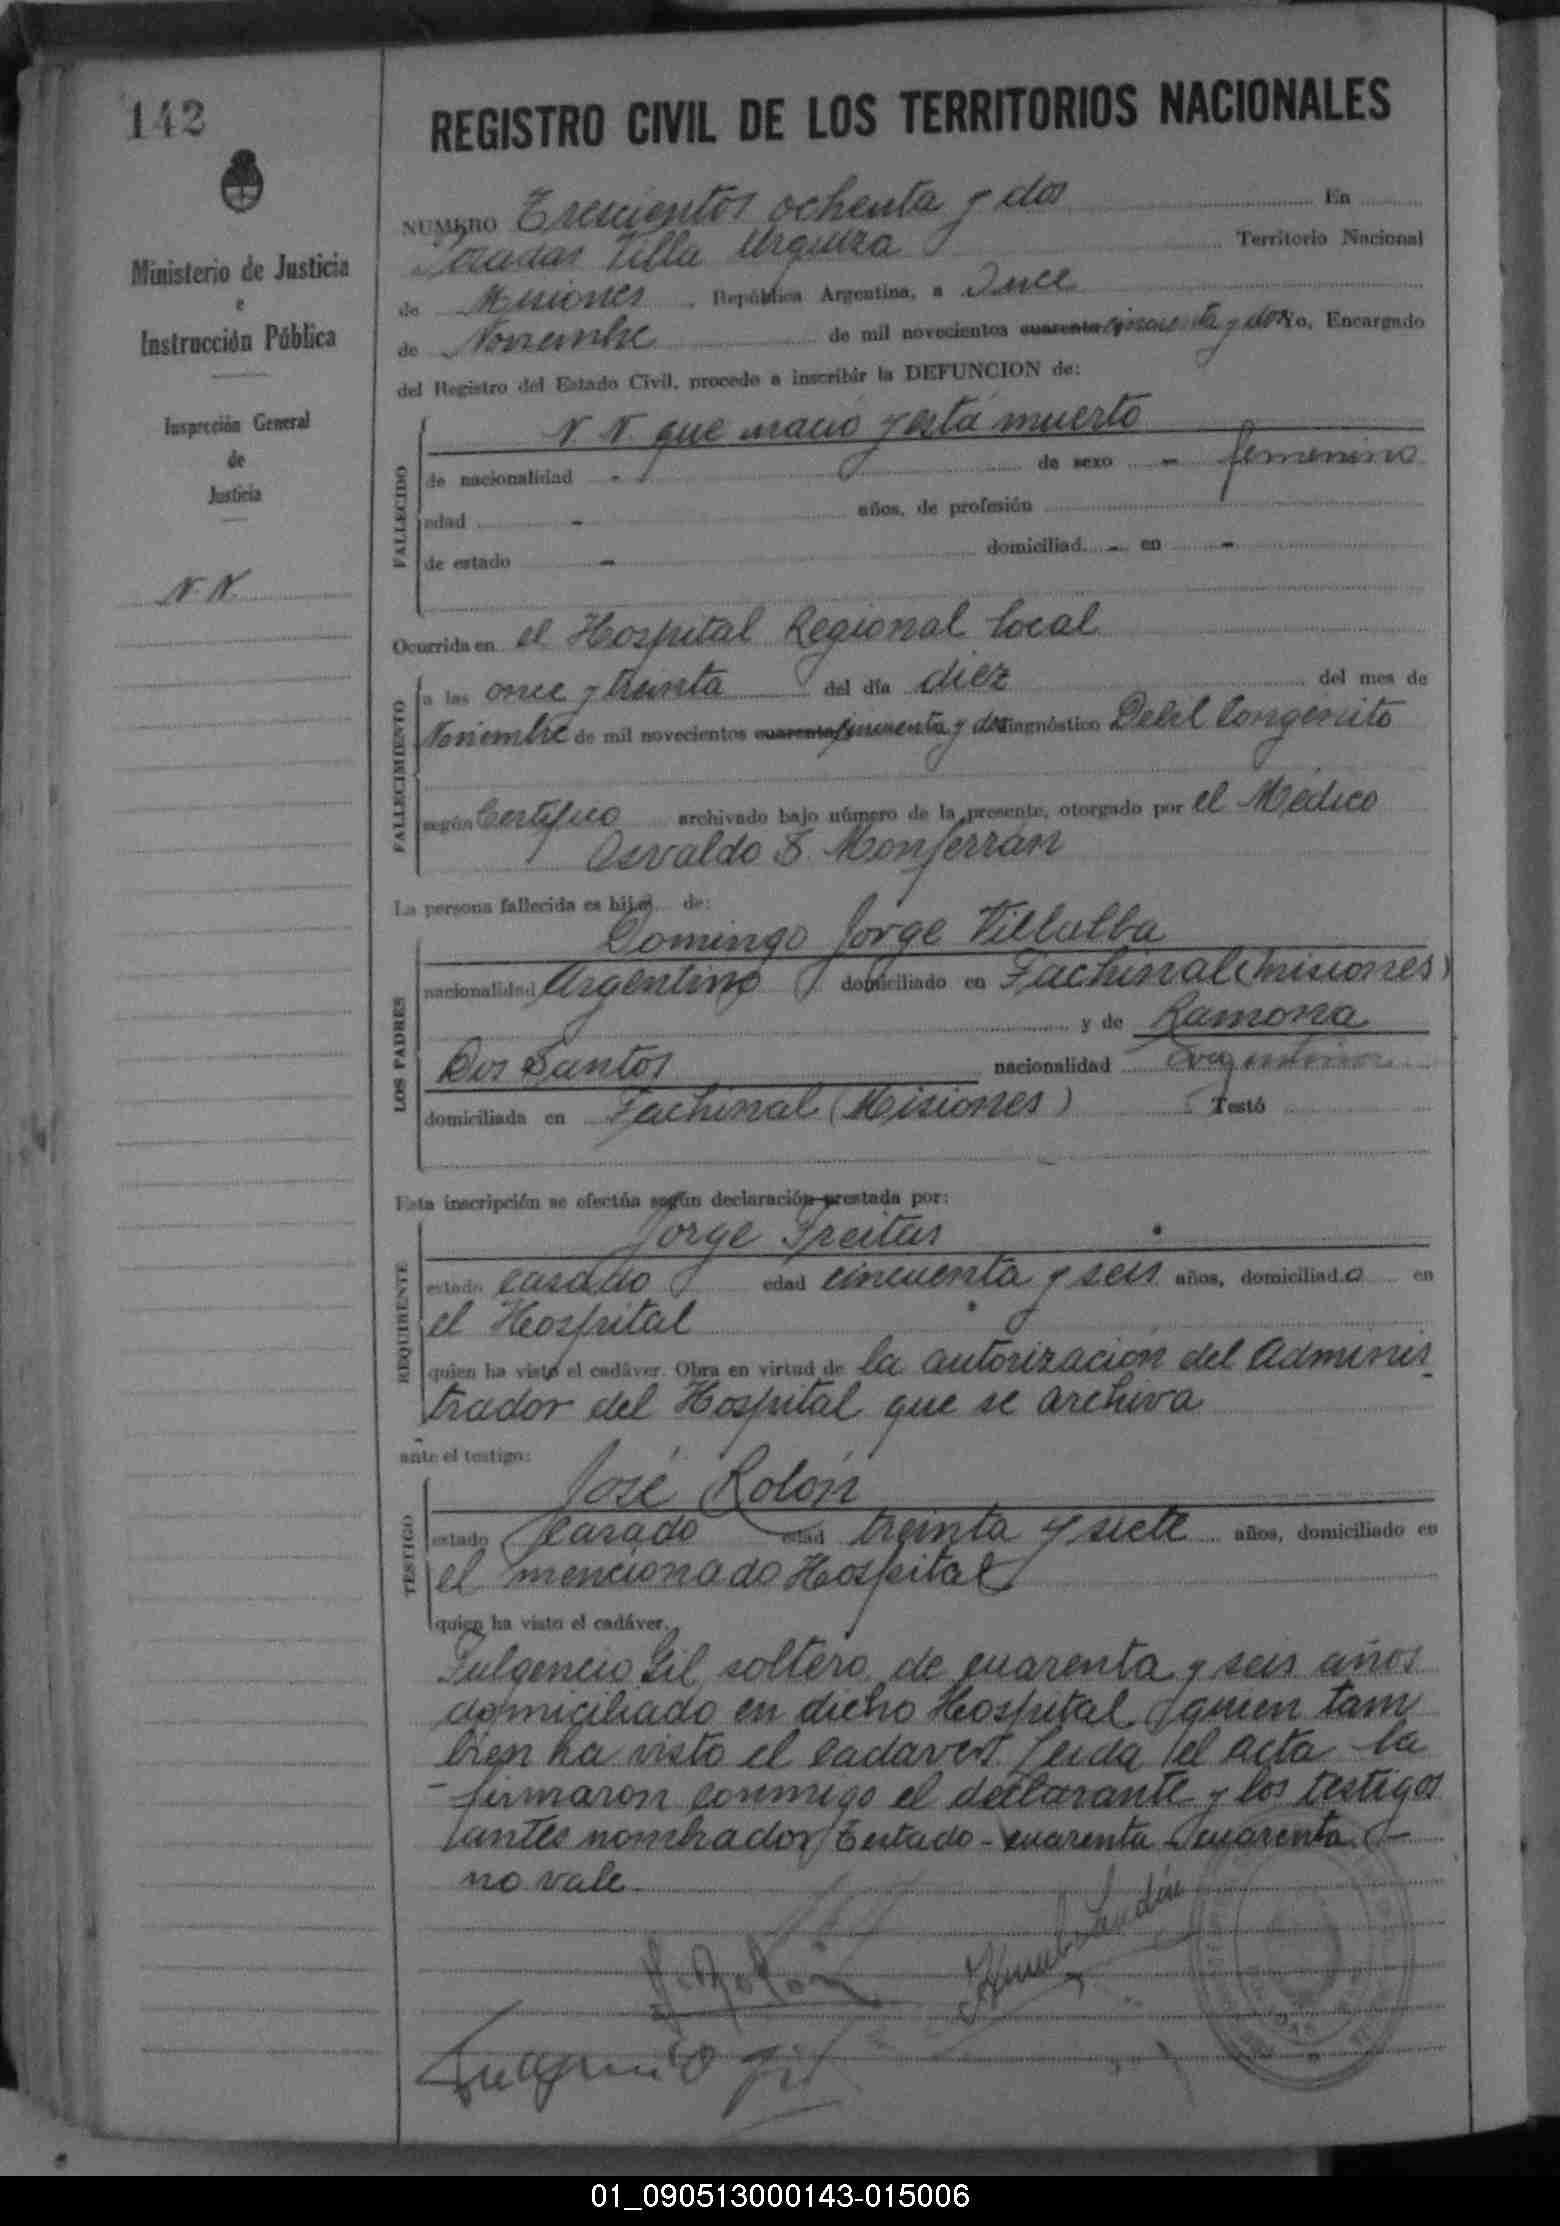 142
REGISTRO CIVIL DE LOS TERRITORIOS NACIONALES
Ministerio de Justicia
e
Instrucción Pública
Inspección General
de
Justicia
N. N.
NUMERO Trescientos ochenta y dos En
Posadas Villa Urquiza Territorio Nacional
de Misiones República Argentina, a Once
de Noviembre de mil novecientos cuarenta cincuenta y dos Yo, Encargado
del Registro del Estado Civil, procedo a inscribir la DEFUNCION de:
FALLECIDO
N N. que nació y está muerto
de nacionalidad - de sexo - femenino
edad - años, de profesión
de estado - domiciliad - en -
Ocurrida en el Hospital Regional local
FALLECIMIENTO
a las once y treinta del día diez del mes de
Noviembre de mil novecientos cuarenta cincuenta y dos diagnóstico Debil Congenito
según Certifico archivado bajo número de la presente, otorgado por el Médico
Osvaldo S. Monferrán
La persona fallecida es hija de:
LOS PADRES
Domingo Jorge Villalba
nacionalidad Argentino domiciliado en Fachinal (Misiones)
y de Ramona
Dos Santos nacionalidad Argentina
domiciliada en Fachinal (Misiones) Testó
Esta inscripción se efectúa según declaración prestada por:
REQUIRENTE
Jorge Freitas
estado casado edad cincuenta y seis años, domiciliado en
el Hospital
quien ha visto el cadáver. Obra en virtud de la autorización del Adminis
trador del Hospital que se archiva
ante el testigo:
TESTIGO
José Rolón
estado Casado edad treinta y siete años, domiciliado en
el mencionado Hospital
quien ha visto el cadáver.
Fulgencio Gil, soltero, de cuarenta y seis años
domiciliado en dicho Hospital, quien tam
bien ha visto el cadaver. Leida el acta la
firmaron conmigo el declarante y los testigos
antes nombrados Testado - cuarenta - cuarenta -
no vale.
J. Rolón
Fulgencio Gil
01_090513000143-015006